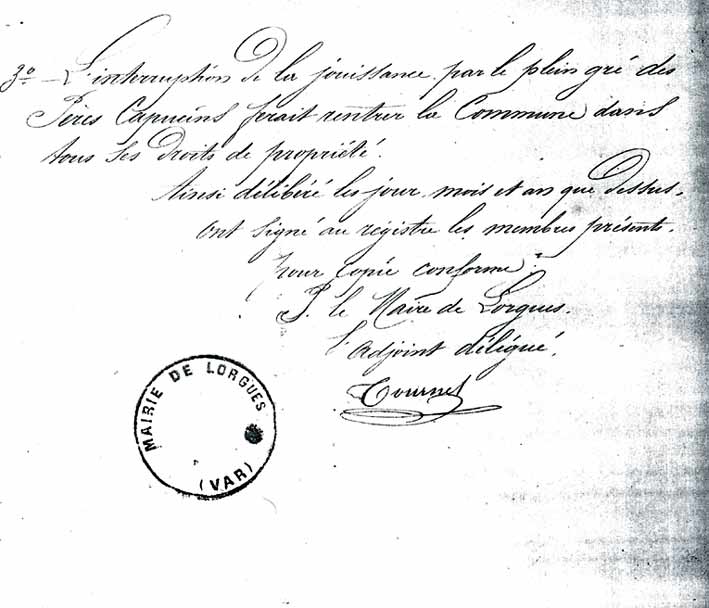 3º- L'interruption de la jouissance, par le plein gré des
Pères Capucins ferait rentrer la Commune dans
tous ses droits de propriété.
Ainsi délibéré les jour, mois et an que dessus,
ont signé au registre les membres présents.
Pour copie conforme:
P. le Maire de Lorgues.
l'adjoint délégué.
Tournel
MAIRIE DE LORGUES
(VAR)